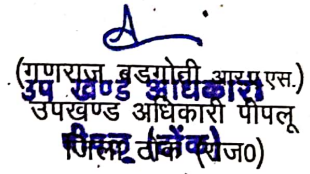 (गणराज बडगोती आर.ए.एस.)
उप खण्ड अधिकारी
उपखण्ड अधिकारी पीपलू
पीपलू (टोंक)
जिला टोंक (राज0)